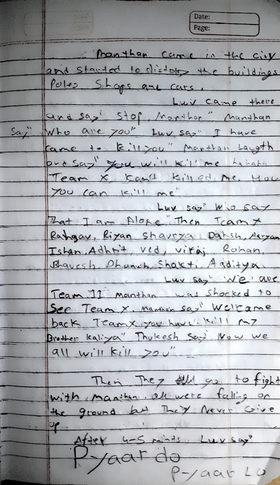 Date:
Page:
Manthan came in the city
and started to distroy the buildings
Poles Shops are cars.
Luv came there
and say" Stop Manthan" Manthan
Say" Who are you" Luv say" I have
came to kill you" Manthan laugth
and say" you will kill me hahaha
Team X, Kand killed me. How
you can kill me"
Luv say" Who say
That I am Alone" Then Team X
Raghav, Riyan Shaurya Daksh, Aryan
Ishan, Adhrit ved, viraj Rohan,
Bhavesh Dhruvish, Shakti, Aaditya
Luv say" We are
Team II manthan was shocked to
See Team X. manthan say" Welcome
back. Team X you have kill my
Brother kaliya" Thukesh Say" Now we
all will kill you".
Then They go to fight
with manthan. all were falling on
the ground but They Never Give
up.
After 4-5 minds Luv say"
P-yaar do
P-yaar Lo